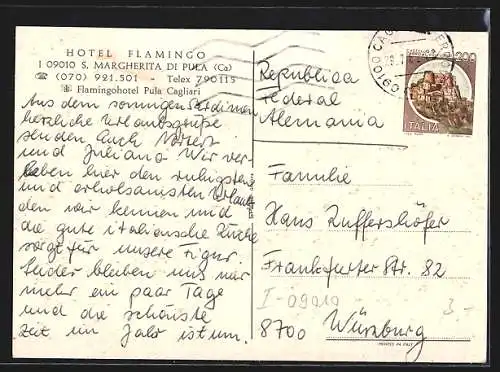 HOTEL FLAMINGO
I 09010 S. MARGHERITA DI PULA (Ca)
☎ (070) 921.501 - Telex 790115
Flamingohotel Pula Cagliari
Aus dem sonnigen Sardinien
herzliche Urlaubsgrüße
senden Euch
und Juliana. Wir ver-
leben hier den ruhigsten
und erholsamsten Urlaub
den wir kennen und
die gute italienische Küche
sorgt für unsere Figur
Leider bleiben uns nur
mehr ein paar Tage
und die schönste
Zeit im Jahr ist um.
Republica
Federal
Alemania
Familie
Hans Ruffershöfer
Frankfurter Str. 82
I-09010
3.-
8700 Würzburg
09100 CAG
200
ITALIA
PRINTED IN ITALY